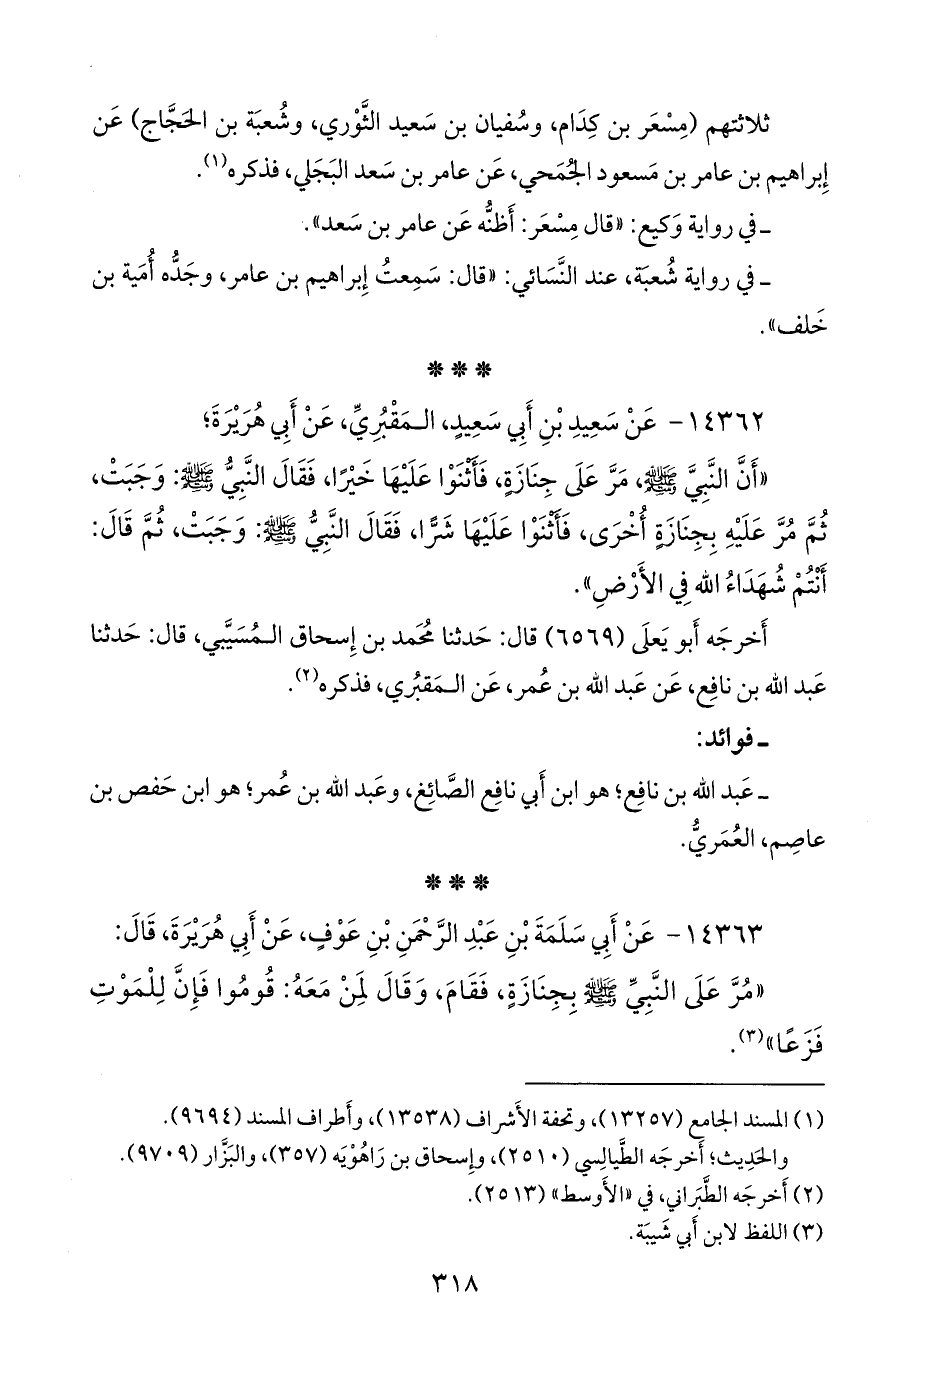 ثلاثتهم (مِسْعَر بن كِدَام، وسُفيان بن سَعيد الثَّوْري، وشُعبَة بن الحَجَّاج) عَن
إِبراهيم بن عامر بن مَسعود الجُمَحي، عَن عامر بن سَعد البَجَلي، فذكره(١).
ـ في رواية وَكيع: «قال مِسْعَر: أَظنُّه عَن عامر بن سَعد».
ـ في رواية شُعبَة، عند النَّسَائي: «قال: سَمِعتُ إِبراهيم بن عامر، وجَدُّه أُمَية بن
خَلف».
* * *
١٤٣٦٢- عَنْ سَعِيدِ بْنِ أَبِي سَعِيدٍ، الـمَقْبُرِيِّ، عَنْ أَبِي هُرَيْرَةَ؛
«أَنَّ النَّبِيَّ ﷺ، مَرَّ عَلَى جِنَازَةٍ، فَأَثْنَوْا عَلَيْهَا خَيْرًا، فَقَالَ النَّبِيُّ ﷺ: وَجَبَتْ،
ثُمَّ مُرَّ عَلَيْهِ بِجِنَازَةٍ أُخْرَى، فَأَثْنَوْا عَلَيْهَا شَرًّا، فَقَالَ النَّبِيُّ ﷺ: وَجَبَتْ، ثُمَّ قَالَ:
أَنْتُمْ شُهَدَاءُ الله فِي الأَرْضِ».
أَخرجَه أَبو يَعلَى (٦٥٦٩) قال: حَدثنا مُحَمد بن إِسحاق الـمُسَيَّبي، قال: حَدثنا
عَبد الله بن نافِع، عَن عَبد الله بن عُمر، عَن الـمَقبُري، فذكره(٢).
ـ فوائد:
ـ عَبد الله بن نافِع؛ هو ابن أَبي نافِع الصَّائِغ، وعَبد الله بن عُمر؛ هو ابن حَفص بن
عاصِم، العُمَريُّ.
* * *
١٤٣٦٣- عَنْ أَبِي سَلَمَةَ بْنِ عَبْدِ الرَّحْمَنِ بْنِ عَوْفٍ، عَنْ أَبِي هُرَيْرَةَ، قَالَ:
«مُرَّ عَلَى النَّبِيِّ ﷺ بِجِنَازَةٍ، فَقَامَ، وَقَالَ لِمَنْ مَعَهُ: قُومُوا فَإِنَّ لِلْمَوْتِ
فَزَعًا»(٣).
(١) المسند الجامع (١٣٢٥٧)، وتحفة الأَشراف (١٣٥٣٨)، وأَطراف المسند (٩٦٩٤).
والحَديث؛ أَخرجَه الطَّيالِسي (٢٥١٠)، وإِسحاق بن رَاهُوْيَه (٣٥٧)، والبَزَّار (٩٧٠٩).
(٢) أَخرجَه الطَّبَراني، في «الأَوسط» (٢٥١٣).
(٣) اللفظ لابن أَبي شَيبَة.
٣١٨